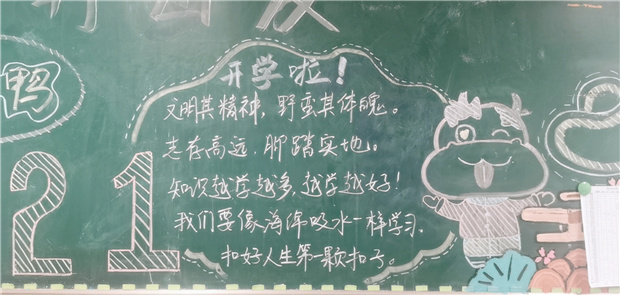 鸭
开学啦！
文明其精神，野蛮其体魄。
志存高远，脚踏实地。
知识越学越多，越学越好！
我们要像海绵吸水一样学习，
扣好人生第一颗扣子。
21